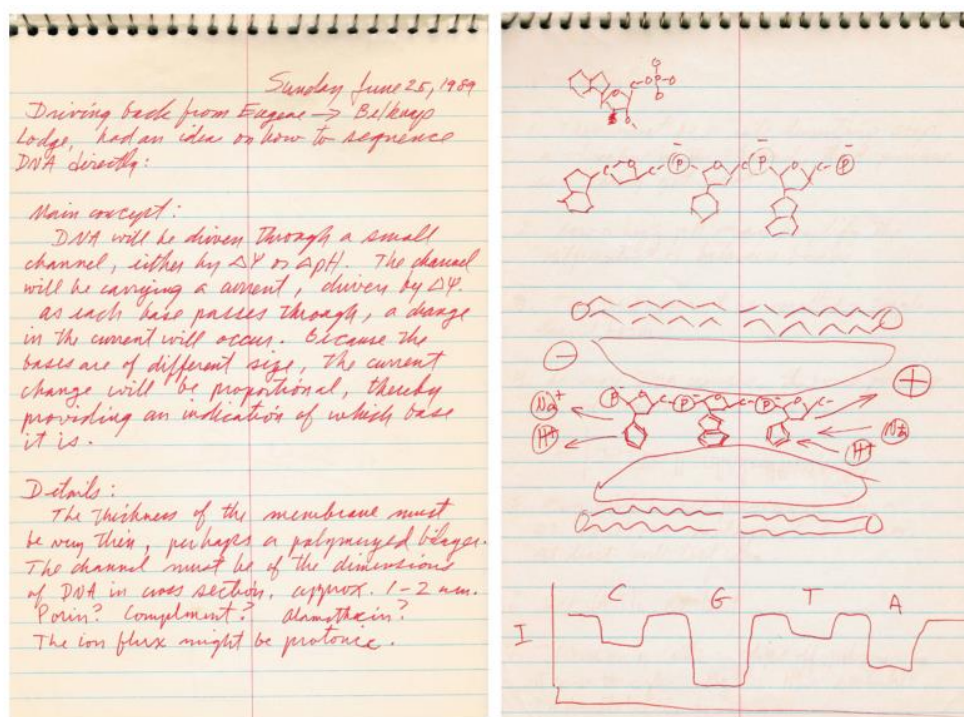 Sunday June 25, 1989
Driving back from Eugene → Belknap
Lodge, had an idea on how to sequence
DNA directly:
Main concept:
DNA will be driven through a small
channel, either by ΔΨ or ΔpH. The channel
will be carrying a current, driven by ΔΨ.
as each base passes through, a change
in the current will occur. Because the
bases are of different size, the current
change will be proportional, thereby
providing an indication of which base
it is.
Details:
The thickness of the membrane must
be very then, perhaps a polymerized bilayer.
The channel must be of the dimensions
of DNA in cross section, approx. 1-2 nm.
Porin? Compliment? alamethicin?
The ion flux might be protonic.
O
O-P-O
O
O
C P C P C P
- +
Na+ P C P C P C
H+ Na+
H+
C G T A
I